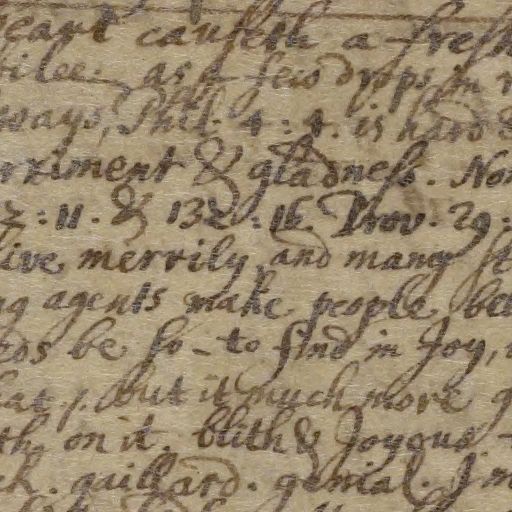 heart causeth a fresh
as a few drops in
ways, Phil. 4 : 4. is hard
rriment & gladness. No
2 : 11. & 132 : 16. Prov. 29.
live merrily, and many
ng agents make people be
be so - to find in Joy,
hat /. but it much more
on it. blith & Joyous
gaillard. genial.